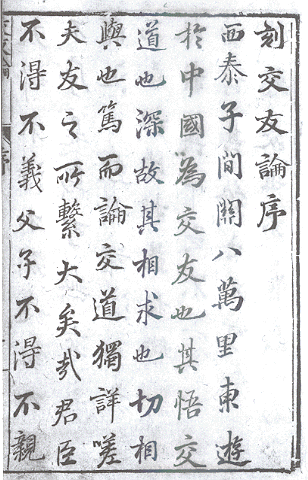 刻交友論序
西泰子間關八萬里東遊
於中國為交友也其悟交
道也深故其相求也切相
與也篤而論交道獨詳嗟
夫友之所繫大矣哉君臣
不得不義父子不得不親